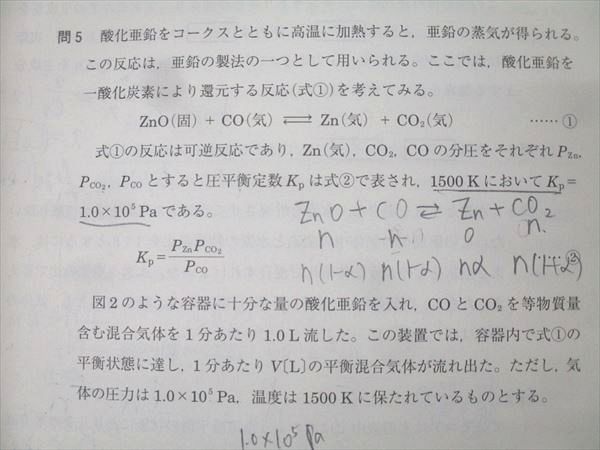 問5 酸化亜鉛をコークスとともに高温に加熱すると，亜鉛の蒸気が得られる。
この反応は，亜鉛の製法の一つとして用いられる。ここでは，酸化亜鉛を
一酸化炭素により還元する反応(式①)を考えてみる。
ZnO(固) + CO(気) ⇄ Zn(気) + CO₂(気) ……①
式①の反応は可逆反応であり，Zn(気)，CO₂，COの分圧をそれぞれP_Zn，
P_CO₂，P_COとすると圧平衡定数K_pは式②で表され，1500 KにおいてK_p=
1.0×10⁵ Paである。
ZnO+CO⇄Zn+CO₂
n n 0 n
K_p = P_Zn P_CO₂ / P_CO
n(1-α) n(1-α) nα n(1+α)
②
図2のような容器に十分な量の酸化亜鉛を入れ，COとCO₂を等物質量
含む混合気体を1分あたり1.0 L流した。この装置では，容器内で式①の
平衡状態に達し，1分あたりV〔L〕の平衡混合気体が流れ出た。ただし，気
体の圧力は1.0×10⁵ Pa，温度は1500 Kに保たれているものとする。
1.0×10⁵ Pa